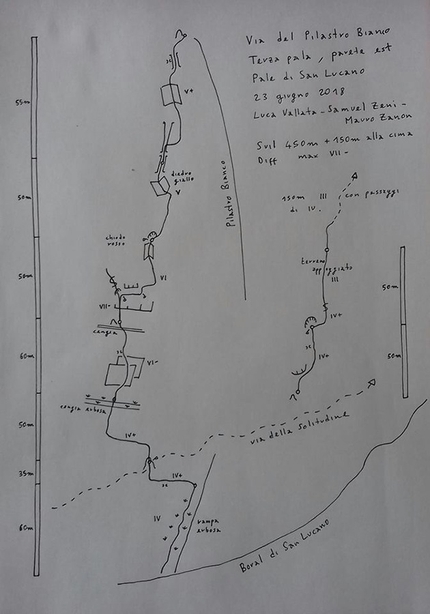 Via del Pilastro Bianco
Terza pala, parete est
Pale di San Lucano
23 giugno 2018
Luca Vallata - Samuel Zeni -
Mauro Zanon
Svil 450m + 150m alla cima
Diff max VII-
55m
V+
diedro
giallo
V
50m
Pilastro Bianco
chiodo
rosso
VI
50m
VII-
cengia
60m
VI-
cengia erbosa
50m
IV+
35m
IV+
60m
IV
rampa
erbosa
via della solitudine
Boral di San Lucano
150m III con passaggi
di IV.
terreno
appoggiato
III
50m
IV+
IV+
50m